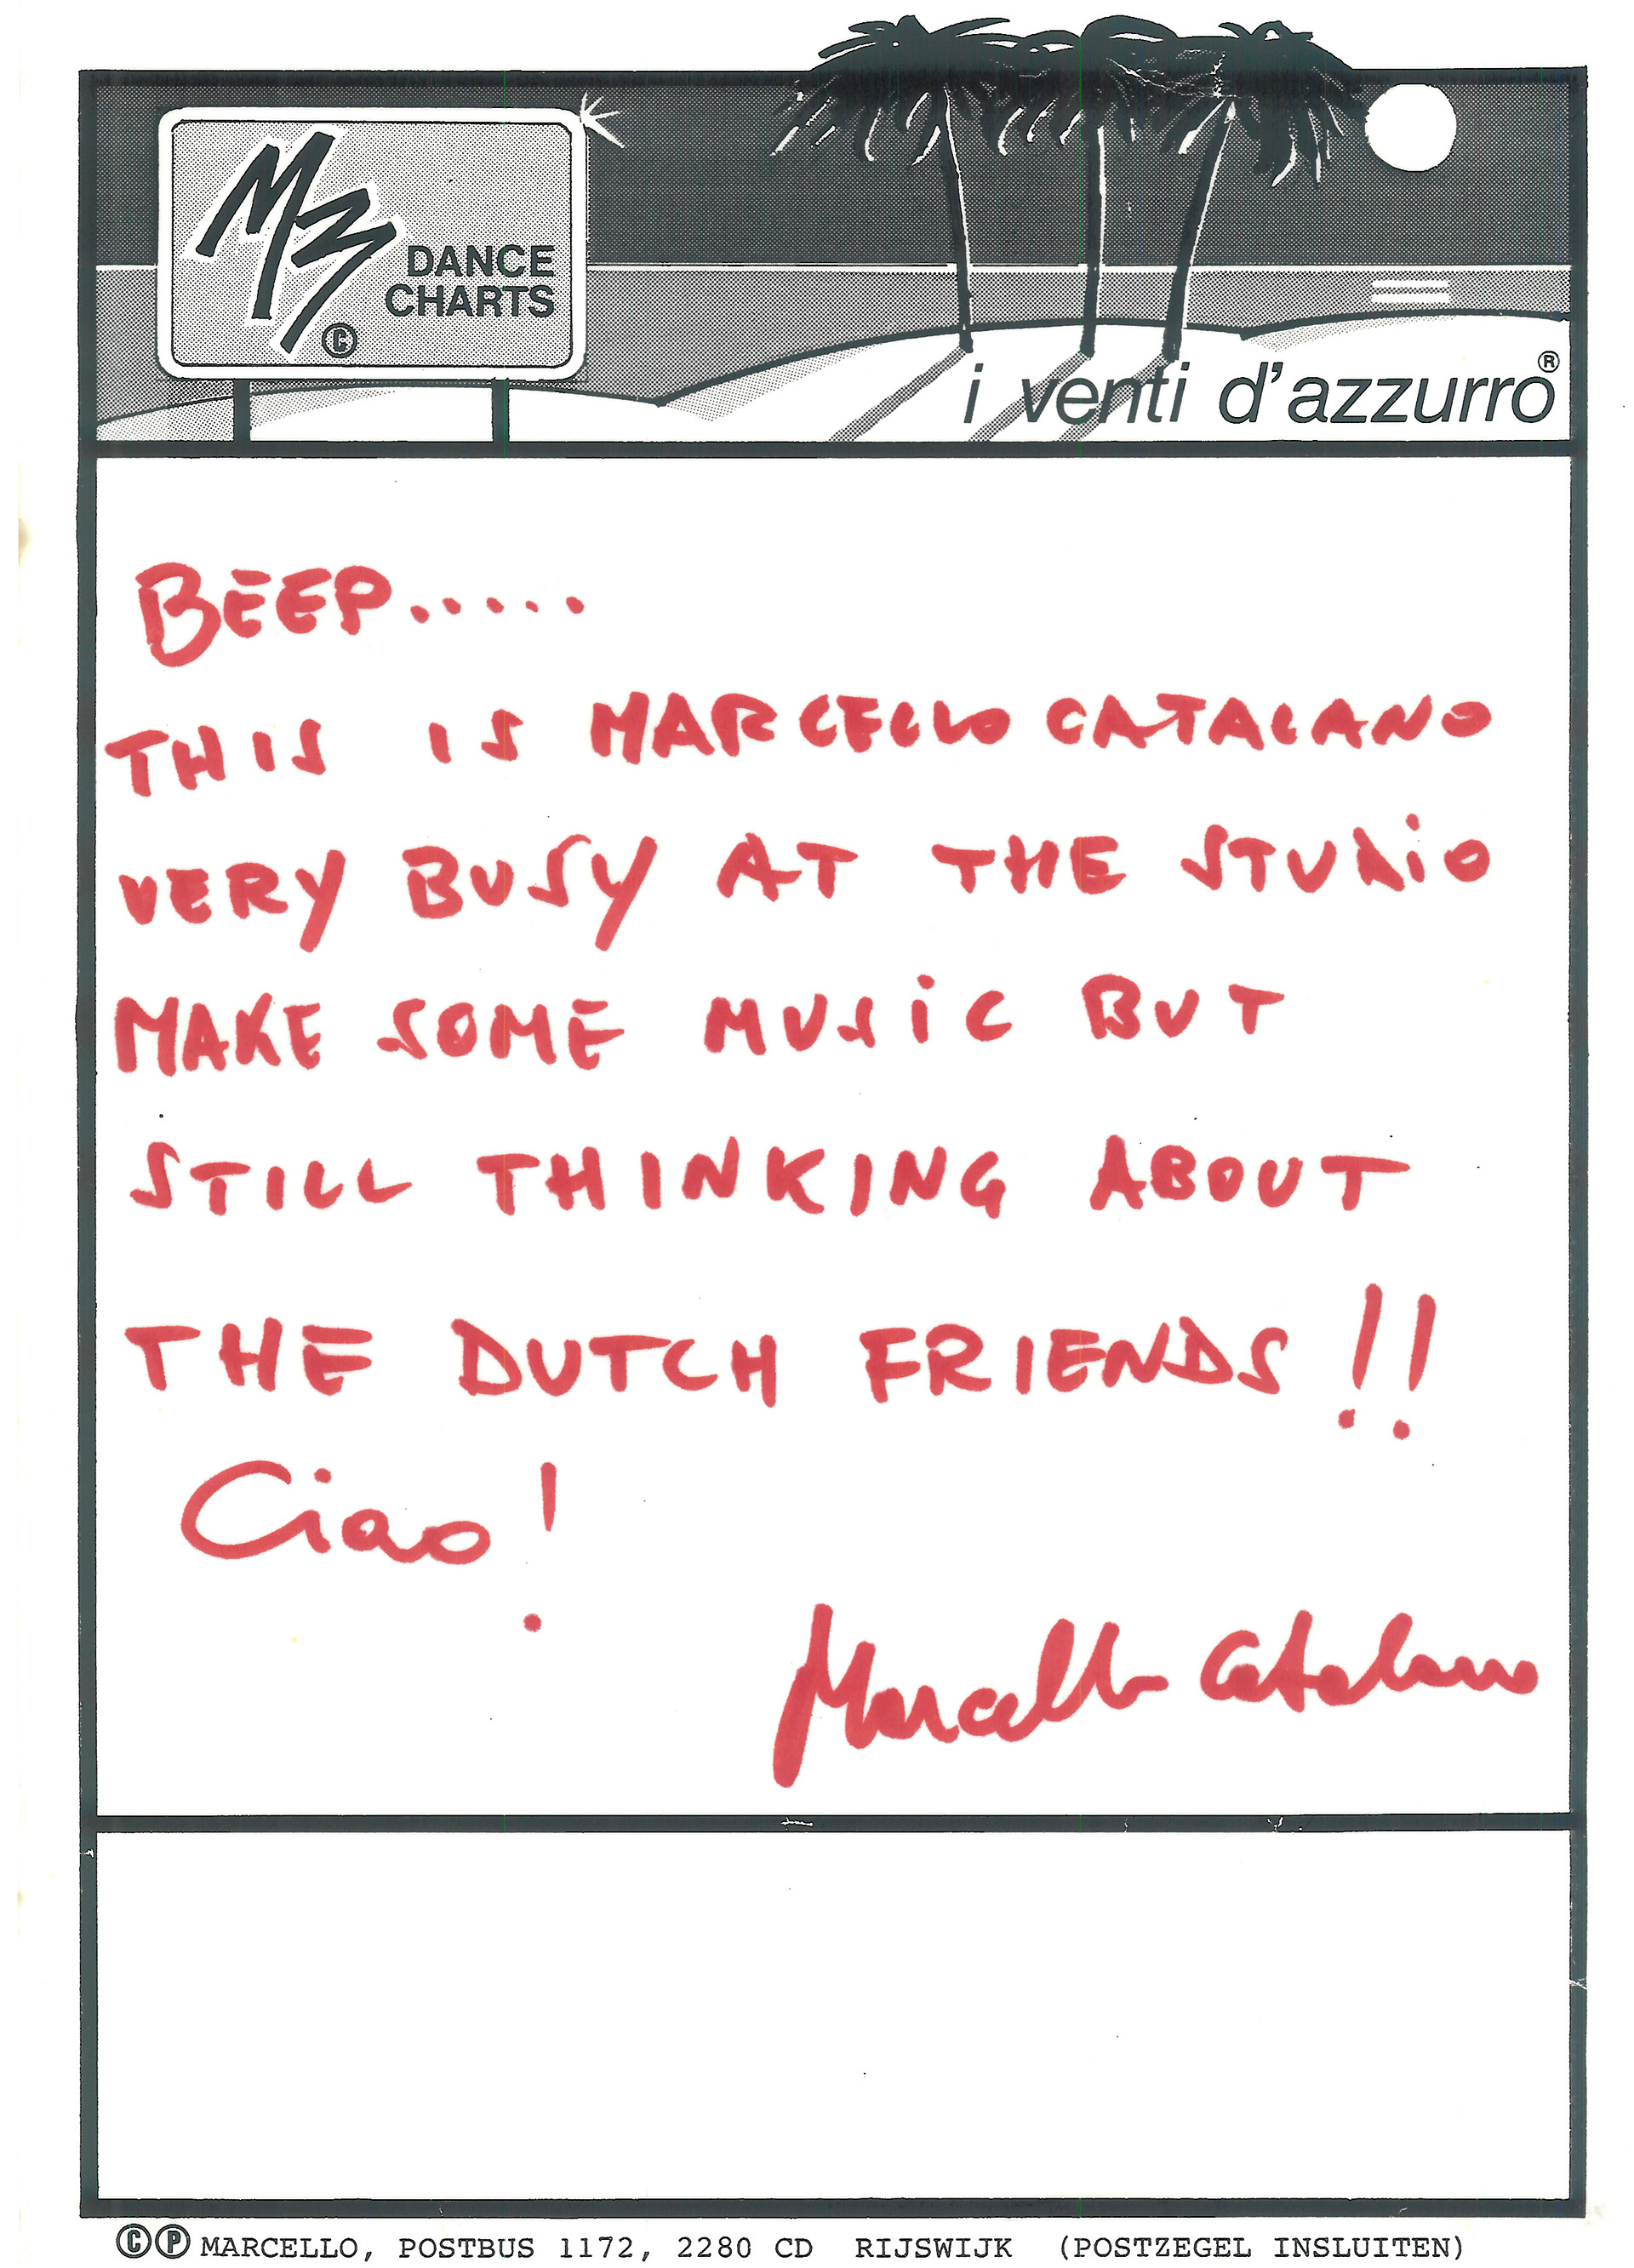 M3
DANCE
CHARTS
©
i venti d'azzurro®
BEEP.....
THIS IS MARCELLO CATALANO
VERY BUSY AT THE STUDiO
MAKE SOME MUSiC BUT
STILL THINKING ABOUT
THE DUTCH FRIENDS!!
Ciao!
Marcello Catalano
©℗ MARCELLO, POSTBUS 1172, 2280 CD RIJSWIJK (POSTZEGEL INSLUITEN)